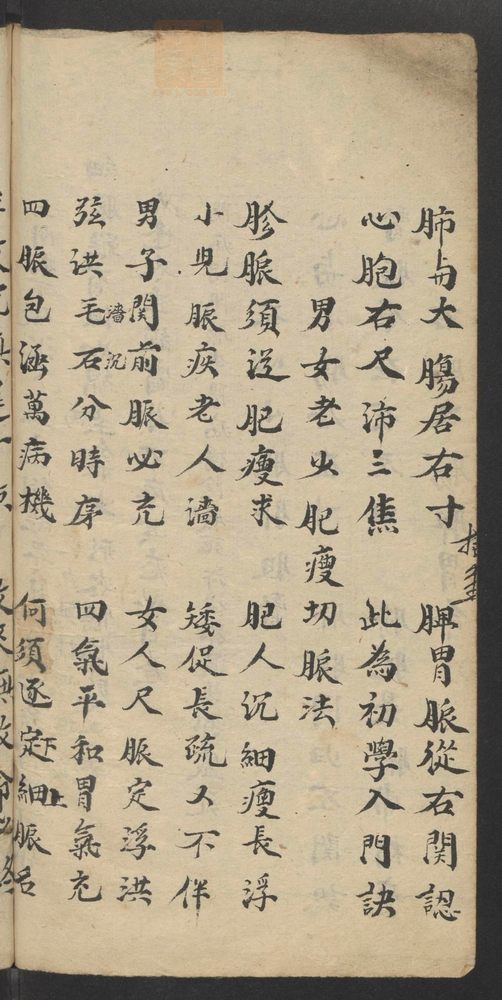 肺与大腸居右寸 脾胃脈從右関認
心胞右尺沛三焦 此為初學入門訣
男女老少肥瘦切脈法
胗脈須逆肥瘦求 肥人沉細瘦長浮
小兒脈疾老人濇 矮促長疏又不侔
男子関前脈必充 女人尺脈定浮洪
弦洪毛濇石沉分時序 四氣平和胃氣充
四脈包涵萬病機 何須逐定下細上脈名